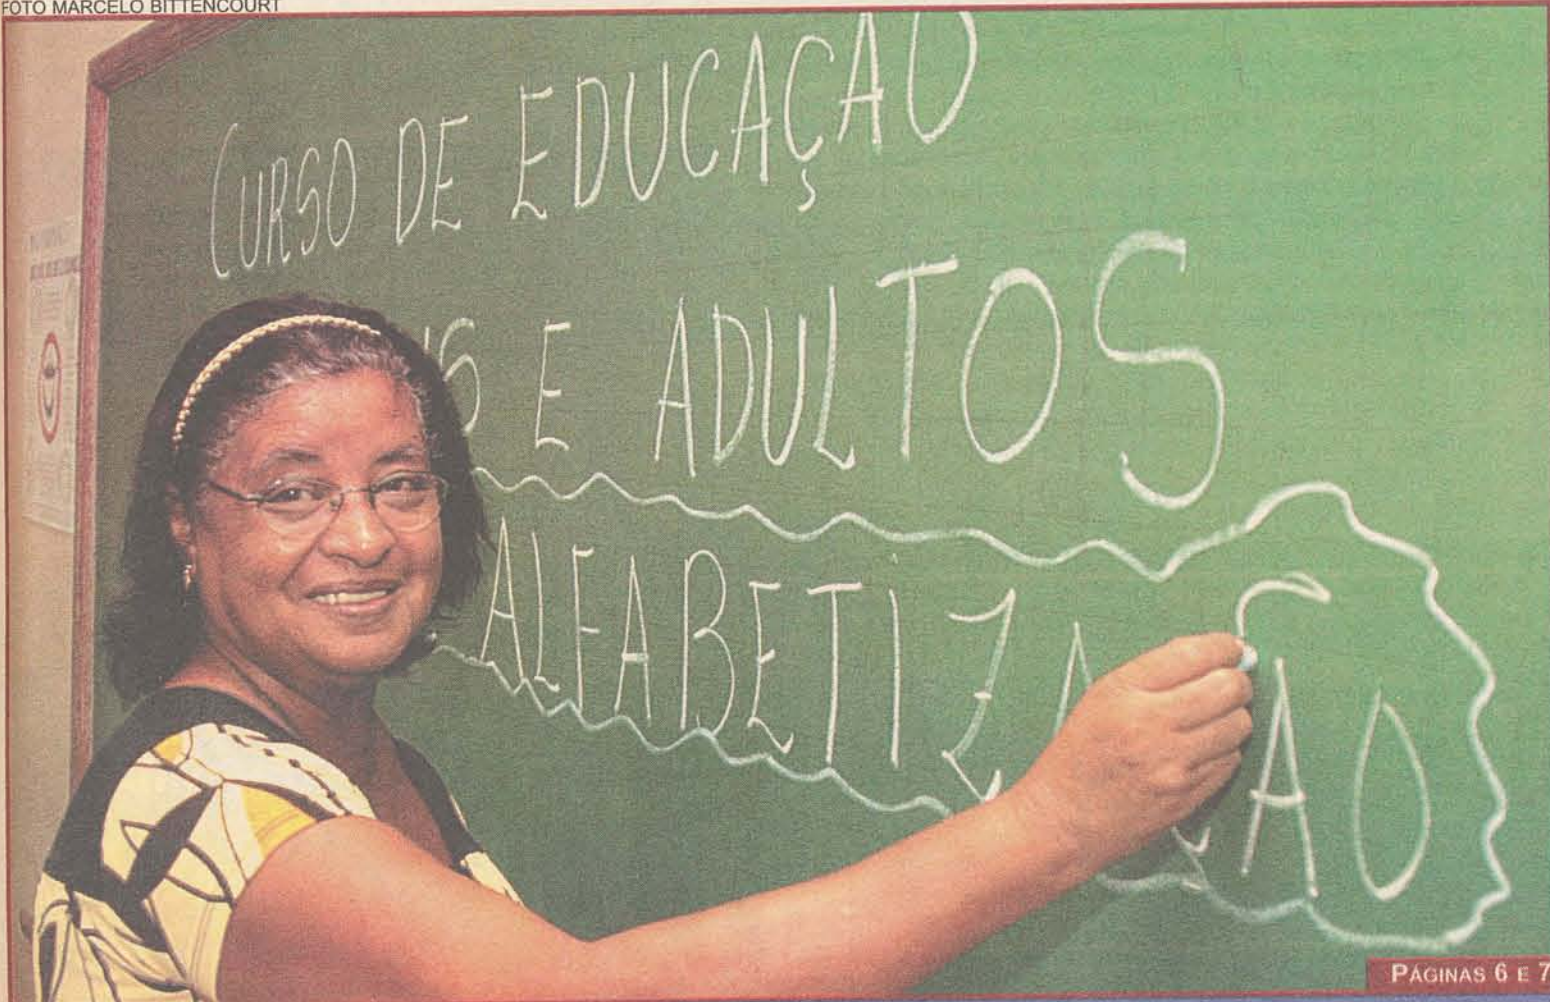 FOTO MARCELO BITTENCOURT
CURSO DE EDUCAÇAO
E ADULTOS
ALFABETIZAÇAO
PÁGINAS 6 E 7